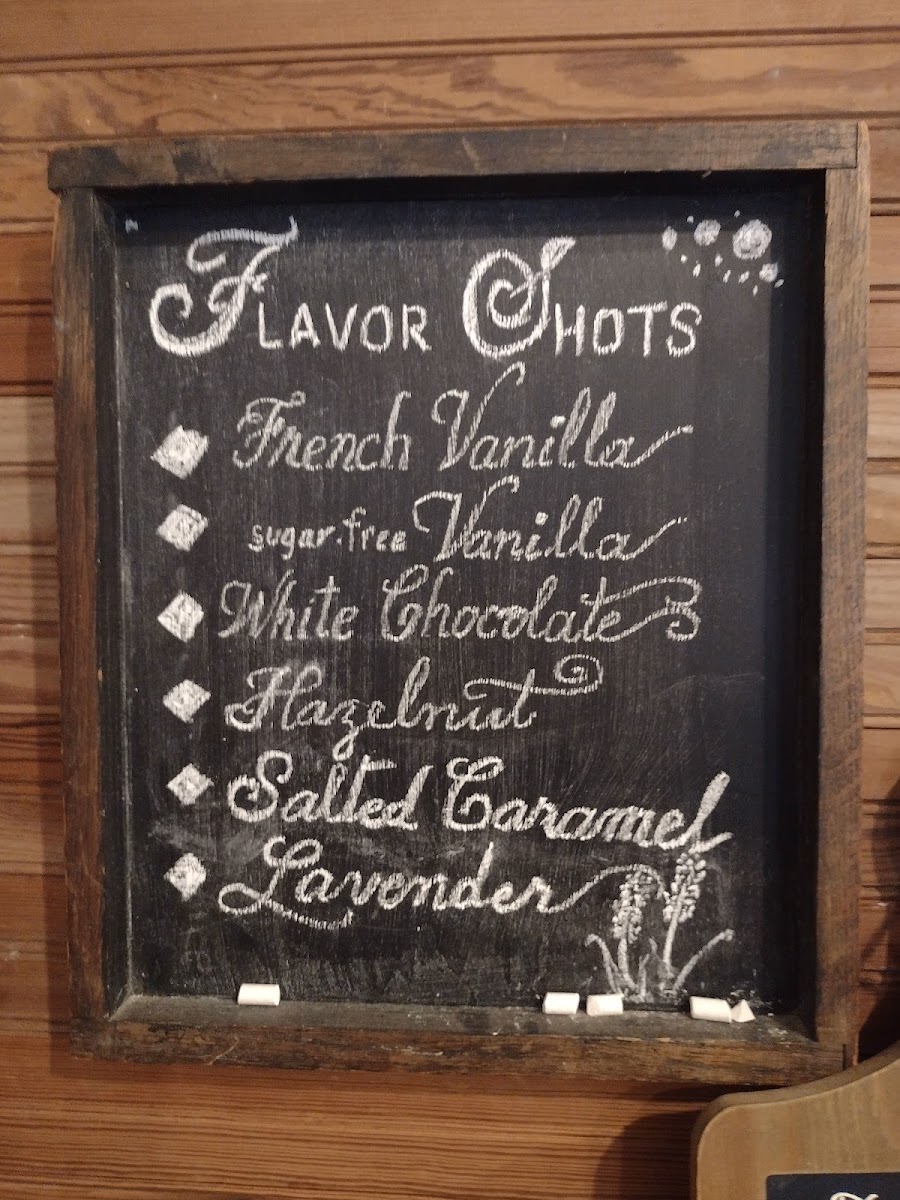 Flavor Shots
French Vanilla
sugar-free Vanilla
White Chocolate
Hazelnut
Salted Caramel
Lavender